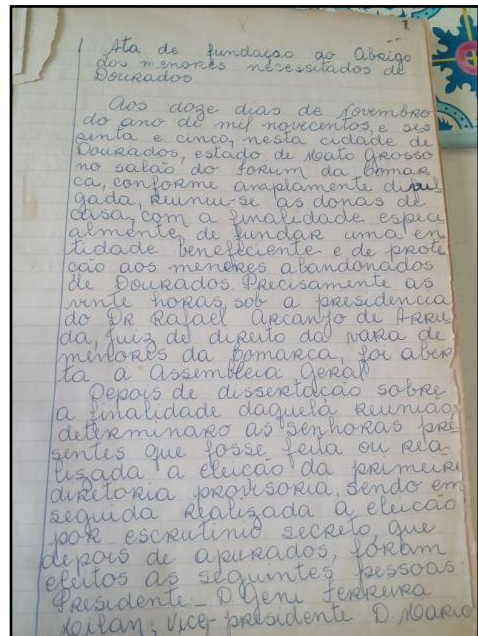 1
Ata de fundação do Abrigo
dos menores necessitados de
Dourados
Aos doze dias de Novembro
do ano de mil novecentos, e ses
senta e cinco, nesta cidade de
Dourados, estado de Mato Grosso
no salão do forum da Comar
ca, conforme amplamente divul
gada, reuniu-se as donas de
casa, com a finalidade especi
almente, de fundar uma en
tidade beneficiente e de prote
ção aos menores abandonados
de Dourados. Precisamente as
vinte horas, sob a presidencia
do DR Rafael Arcanjo de Arru
da, juiz de direito da vara de
menores da Comarca, foi aber
ta a Assembleia Geral
Depois de dissertação sobre
a finalidade daquela reunião,
determinaro as senhoras pre
sentes que fosse feita ou rea
lisada a eleição da primeira
diretoria provisoria, sendo em
seguida realizada a eleição
por escrutinio secreto, que
depois de apurados, foram
eleitos as seguintes pessoas
Presidente - D Geni Ferreira
Milan, Vice-presidente D. Maria